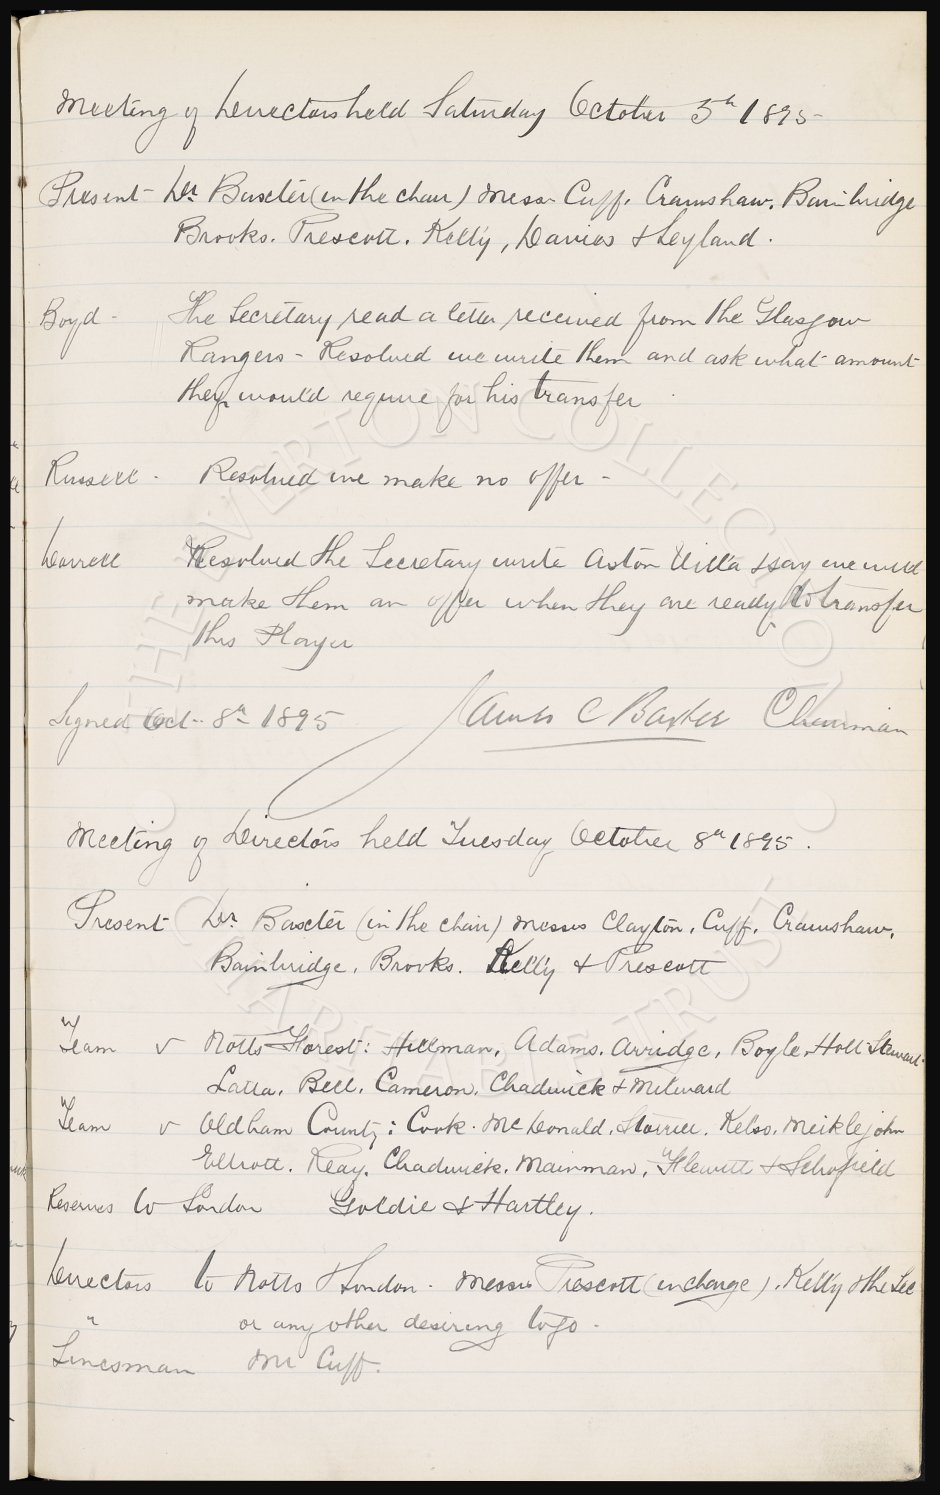 Meeting of Directors held Saturday October 5th 1895
Present - Dr. Baxter (in the chair) Messrs Cuff. Crawshaw. Bainbridge
Brooks. Prescott. Kelly, Davies & Leyland.
Boyd - The Secretary read a letter received from the Glasgow
Rangers - Resolved we write them and ask what amount
they would require for his transfer
Russell - Resolved we make no offer -
Dorrell Resolved the Secretary write Aston Villa & say we will
make them an offer when they are ready to transfer
this Player
Signed Oct. 8th 1895 James C Baxter Chairman
Meeting of Directors held Tuesday October 8th 1895.
Present Dr. Baxter (in the chair) Messrs Clayton, Cuff. Crawshaw.
Bainbridge. Brooks. Kelly & Prescott
Team v Notts Forest: Hillman. Adams. Arridge. Boyle. Holt Stewart
Latta. Bell. Cameron. Chadwick & Milward
Team v Oldham County: Cook. McDonald. Storrier. Kelso. Meiklejohn
Elliott. Reay. Chadwick. Mainman. Flewitt & Schofield
Reserves to London Goldie & Hartley.
Directors to Notts & London. Messrs Prescott (in charge). Kelly & the Sec
" or any other desiring to go -
Linesman Mr Cuff.
THE EVERTON COLLECTION
CHARITABLE TRUST